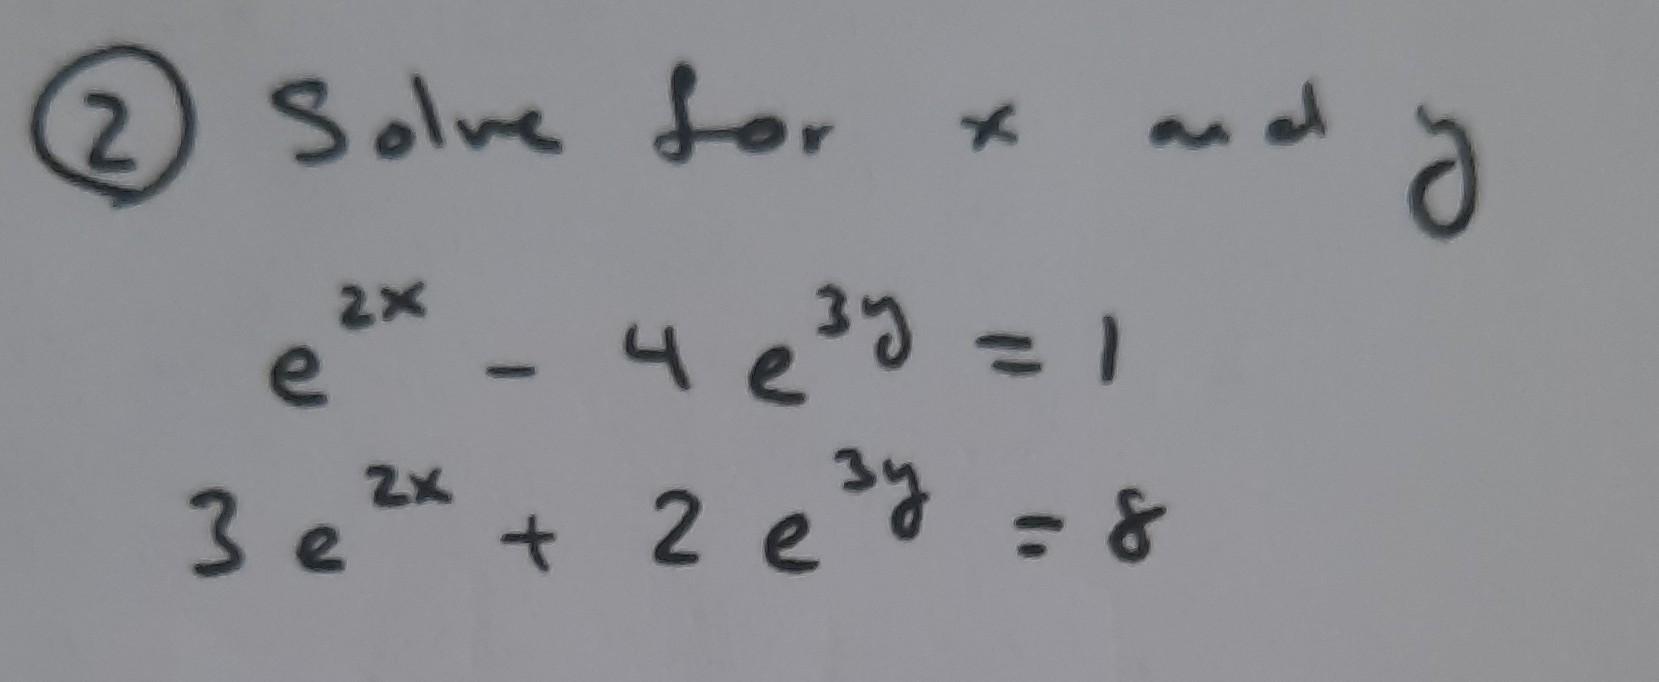 ② Solve for x and y
e^{2x} - 4 e^{3y} = 1
3 e^{2x} + 2 e^{3y} = 8